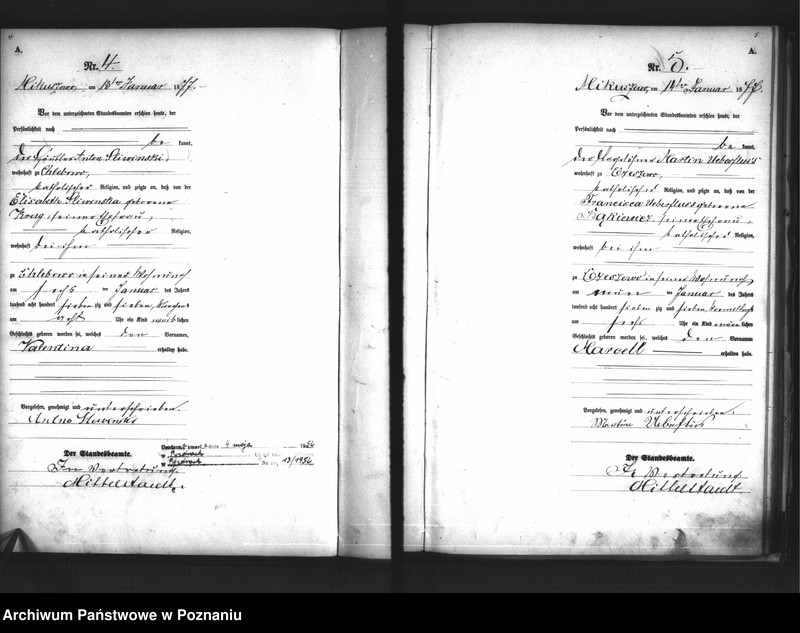 A.
Nr. 4.
Mikuszewo, am 12ten Januar 1877.
Vor dem unterzeichneten Standesbeamten erschien heute, der
Persönlichkeit nach
be kannt,
der Häusler Anton Sliwinski,
wohnhaft zu Chlebowo,
katholischer Religion, und zeigte an, daß von der
Elisabeth Sliwinska geborene
Krug, seiner Ehefrau,
katholischer Religion,
wohnhaft bei ihm
zu Chlebowo in seiner Wohnung
am sechs ten Januar des Jahres
tausend acht hundert sieben zig und sieben, Morgens
um acht Uhr ein Kind weiblichen
Geschlechts geboren worden sei, welches den Vornamen
Valentina erhalten habe.
Vorgelesen, genehmigt und unterschrieben.
Anton Sliwinski
9 maja 1956
13/1956
Der Standesbeamte.
In Vertretung
Mittelstaedt.
5.
A.
Nr. 5.
Mikuszewo, am 12ten Januar 1877.
Vor dem unterzeichneten Standesbeamten erschien heute, der
Persönlichkeit nach
be kannt,
der Tagelöhner Martin Ueberfluss
wohnhaft zu Czeszewo,
katholischer Religion, und zeigte an, daß von der
Francisca Ueberfluss geborene
seiner Ehefrau,
katholischer Religion,
wohnhaft bei ihm
zu Czeszewo in seiner Wohnung
am neun ten Januar des Jahres
tausend acht hundert sieben zig und sieben Vormittags
um sechs Uhr ein Kind männlichen
Geschlechts geboren worden sei, welches den Vornamen
Marcell erhalten habe.
Vorgelesen, genehmigt und unterschrieben.
Martin
Der Standesbeamte.
In Vertretung
Mittelstaedt
Archiwum Państwowe w Poznaniu